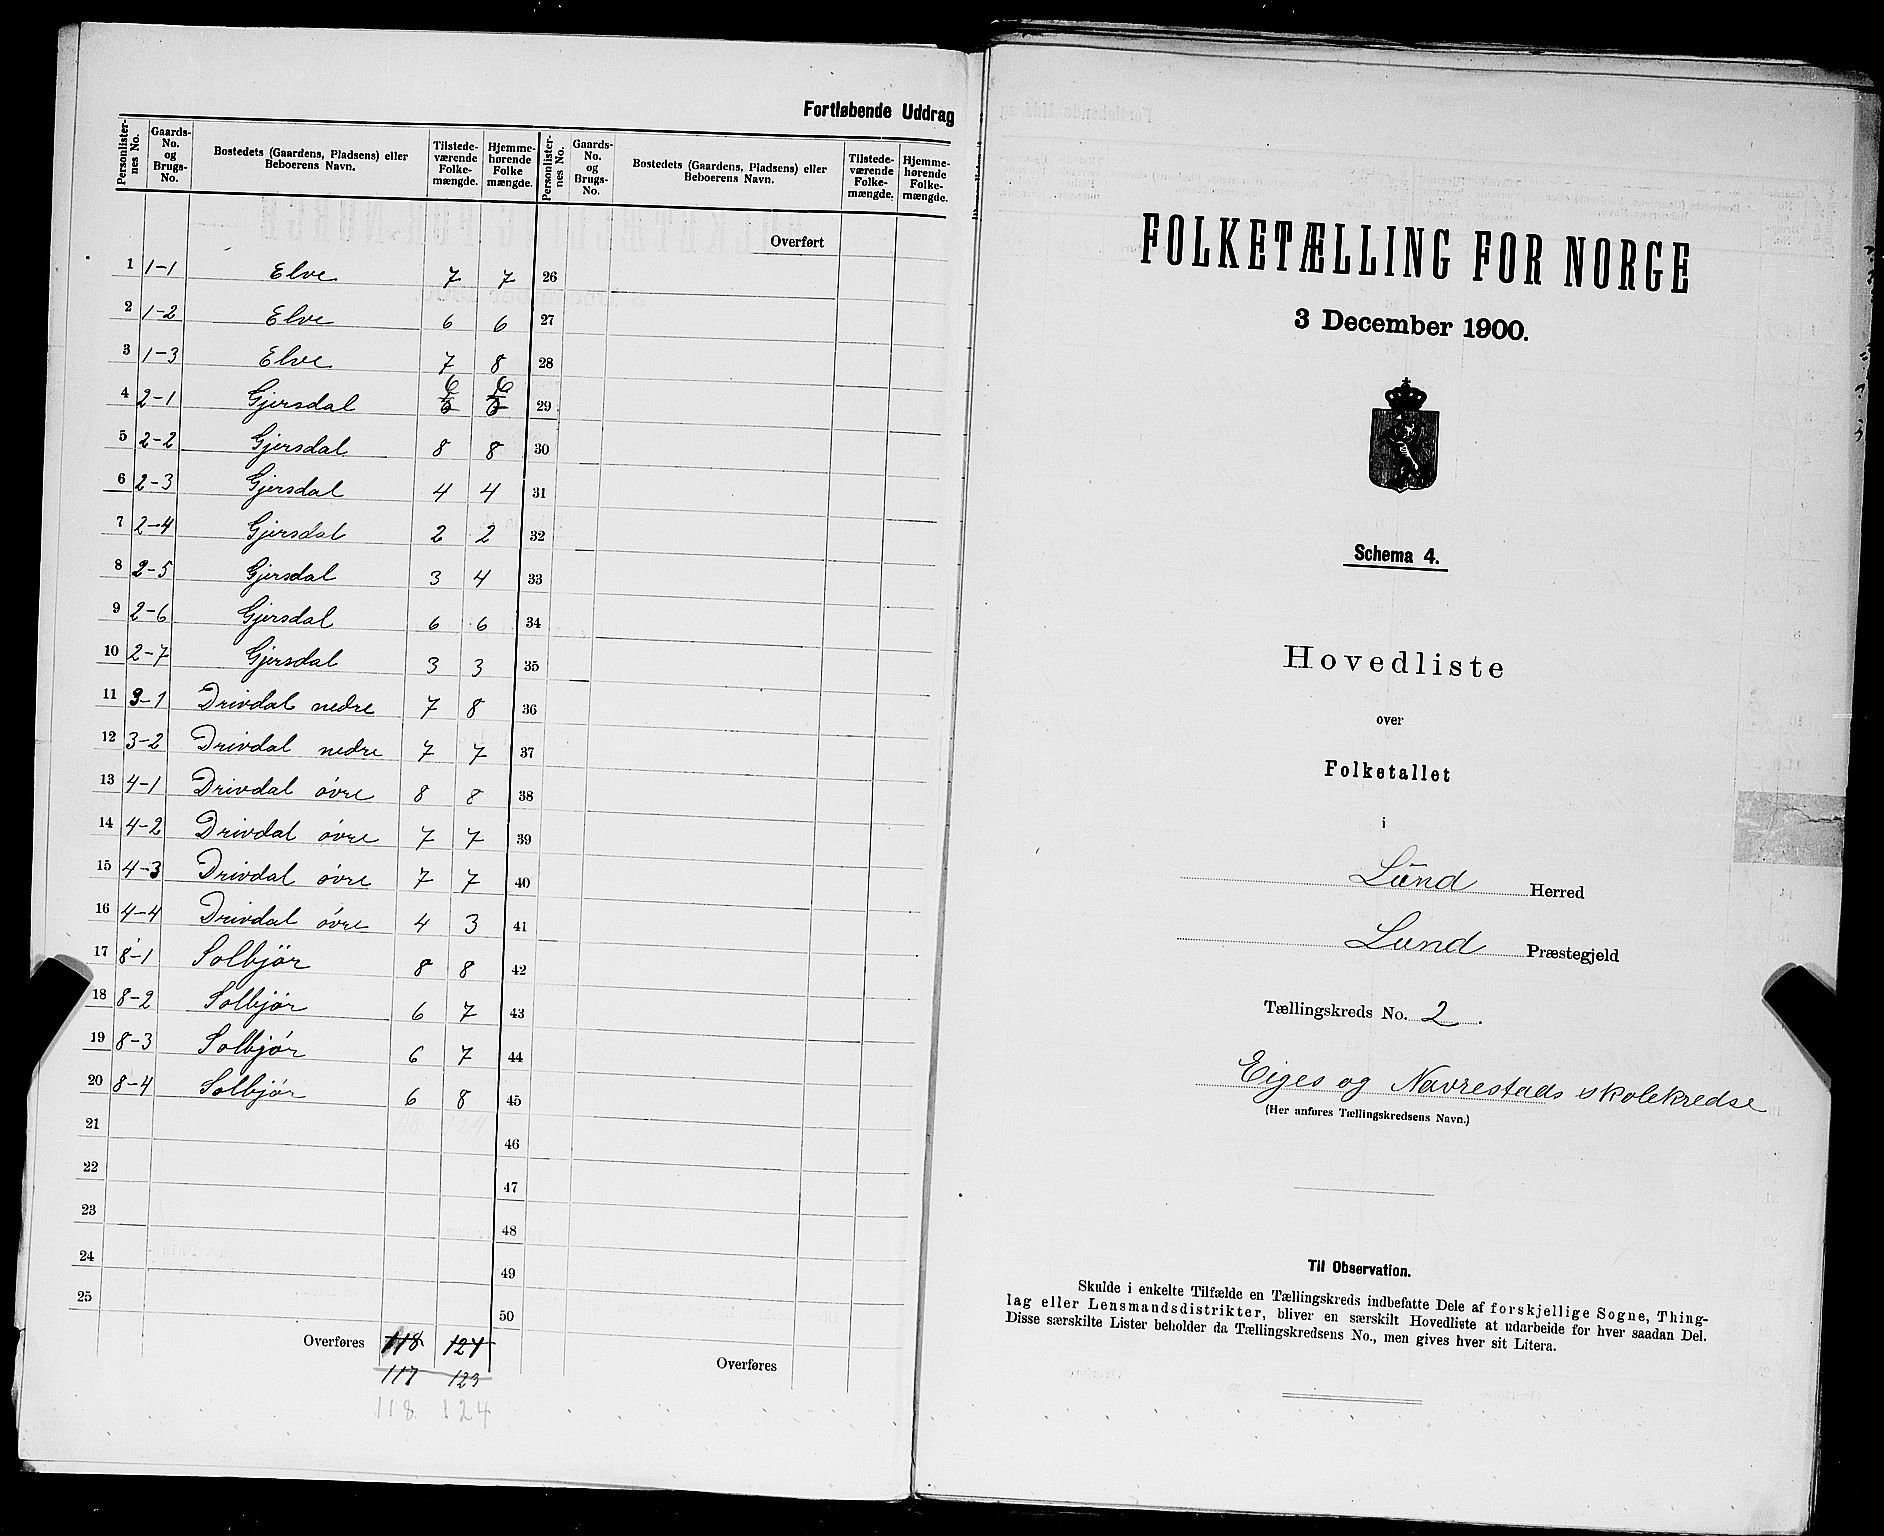 Fortløbende Uddrag
Personlister-nes No. Gaards-No. og Brugs-No. Bostedets (Gaardens, Pladsens) eller Beboerens Navn. Tilstede-værende Folke-mængde. Hjemme-hørende Folke mængde. Personlister-nes No. Gaards-No. og Brugs-No. Bostedets (Gaardens, Pladsens) eller Beboerens Navn. Tilstede-værende Folke-mængde. Hjemme-hørende Folke-mængde.
Overført
1 1-1 Elve 7 7 26
2 1-2 Elve 6 6 27
3 1-3 Elve 7 8 28
4 2-1 Gjersdal 6 6 29
5 2-2 Gjersdal 8 8 30
6 2-3 Gjersdal 4 4 31
7 2-4 Gjersdal 2 2 32
8 2-5 Gjersdal 3 4 33
9 2-6 Gjersdal 6 6 34
10 2-7 Gjersdal 3 3 35
11 3-1 Drivdal nedre 7 8 36
12 3-2 Drivdal nedre 7 7 37
13 4-1 Drivdal øvre 8 8 38
14 4-2 Drivdal øvre 7 7 39
15 4-3 Drivdal øvre 7 7 40
16 4-4 Drivdal øvre 4 3 41
17 8-1 Solbjør 8 8 42
18 8-2 Solbjør 6 7 43
19 8-3 Solbjør 6 7 44
20 8-4 Solbjør 6 8 45
21 46
22 47
23 48
24 49
25 50
Overføres 118 124 Overføres
117 123
118 124
FOLKETÆLLING FOR NORGE
3 December 1900.
Schema 4.
Hovedliste
over
Folketallet
i
Lund Herred
Lund Præstegjeld
Tællingskreds No. 2.
Eiges og Navrestads skolekredse
(Her anføres Tællingskredsens Navn.)
Til Observation.
Skulde i enkelte Tilfælde en Tællingskreds indbefatte Dele af forskjellige Sogne, Thing-
lag eller Lensmandsdistrikter, bliver en særskilt Hovedliste at udarbeide for hver saadan Del.
Disse særskilte Lister beholder da Tællingskredsens No., men gives hver sit Litera.